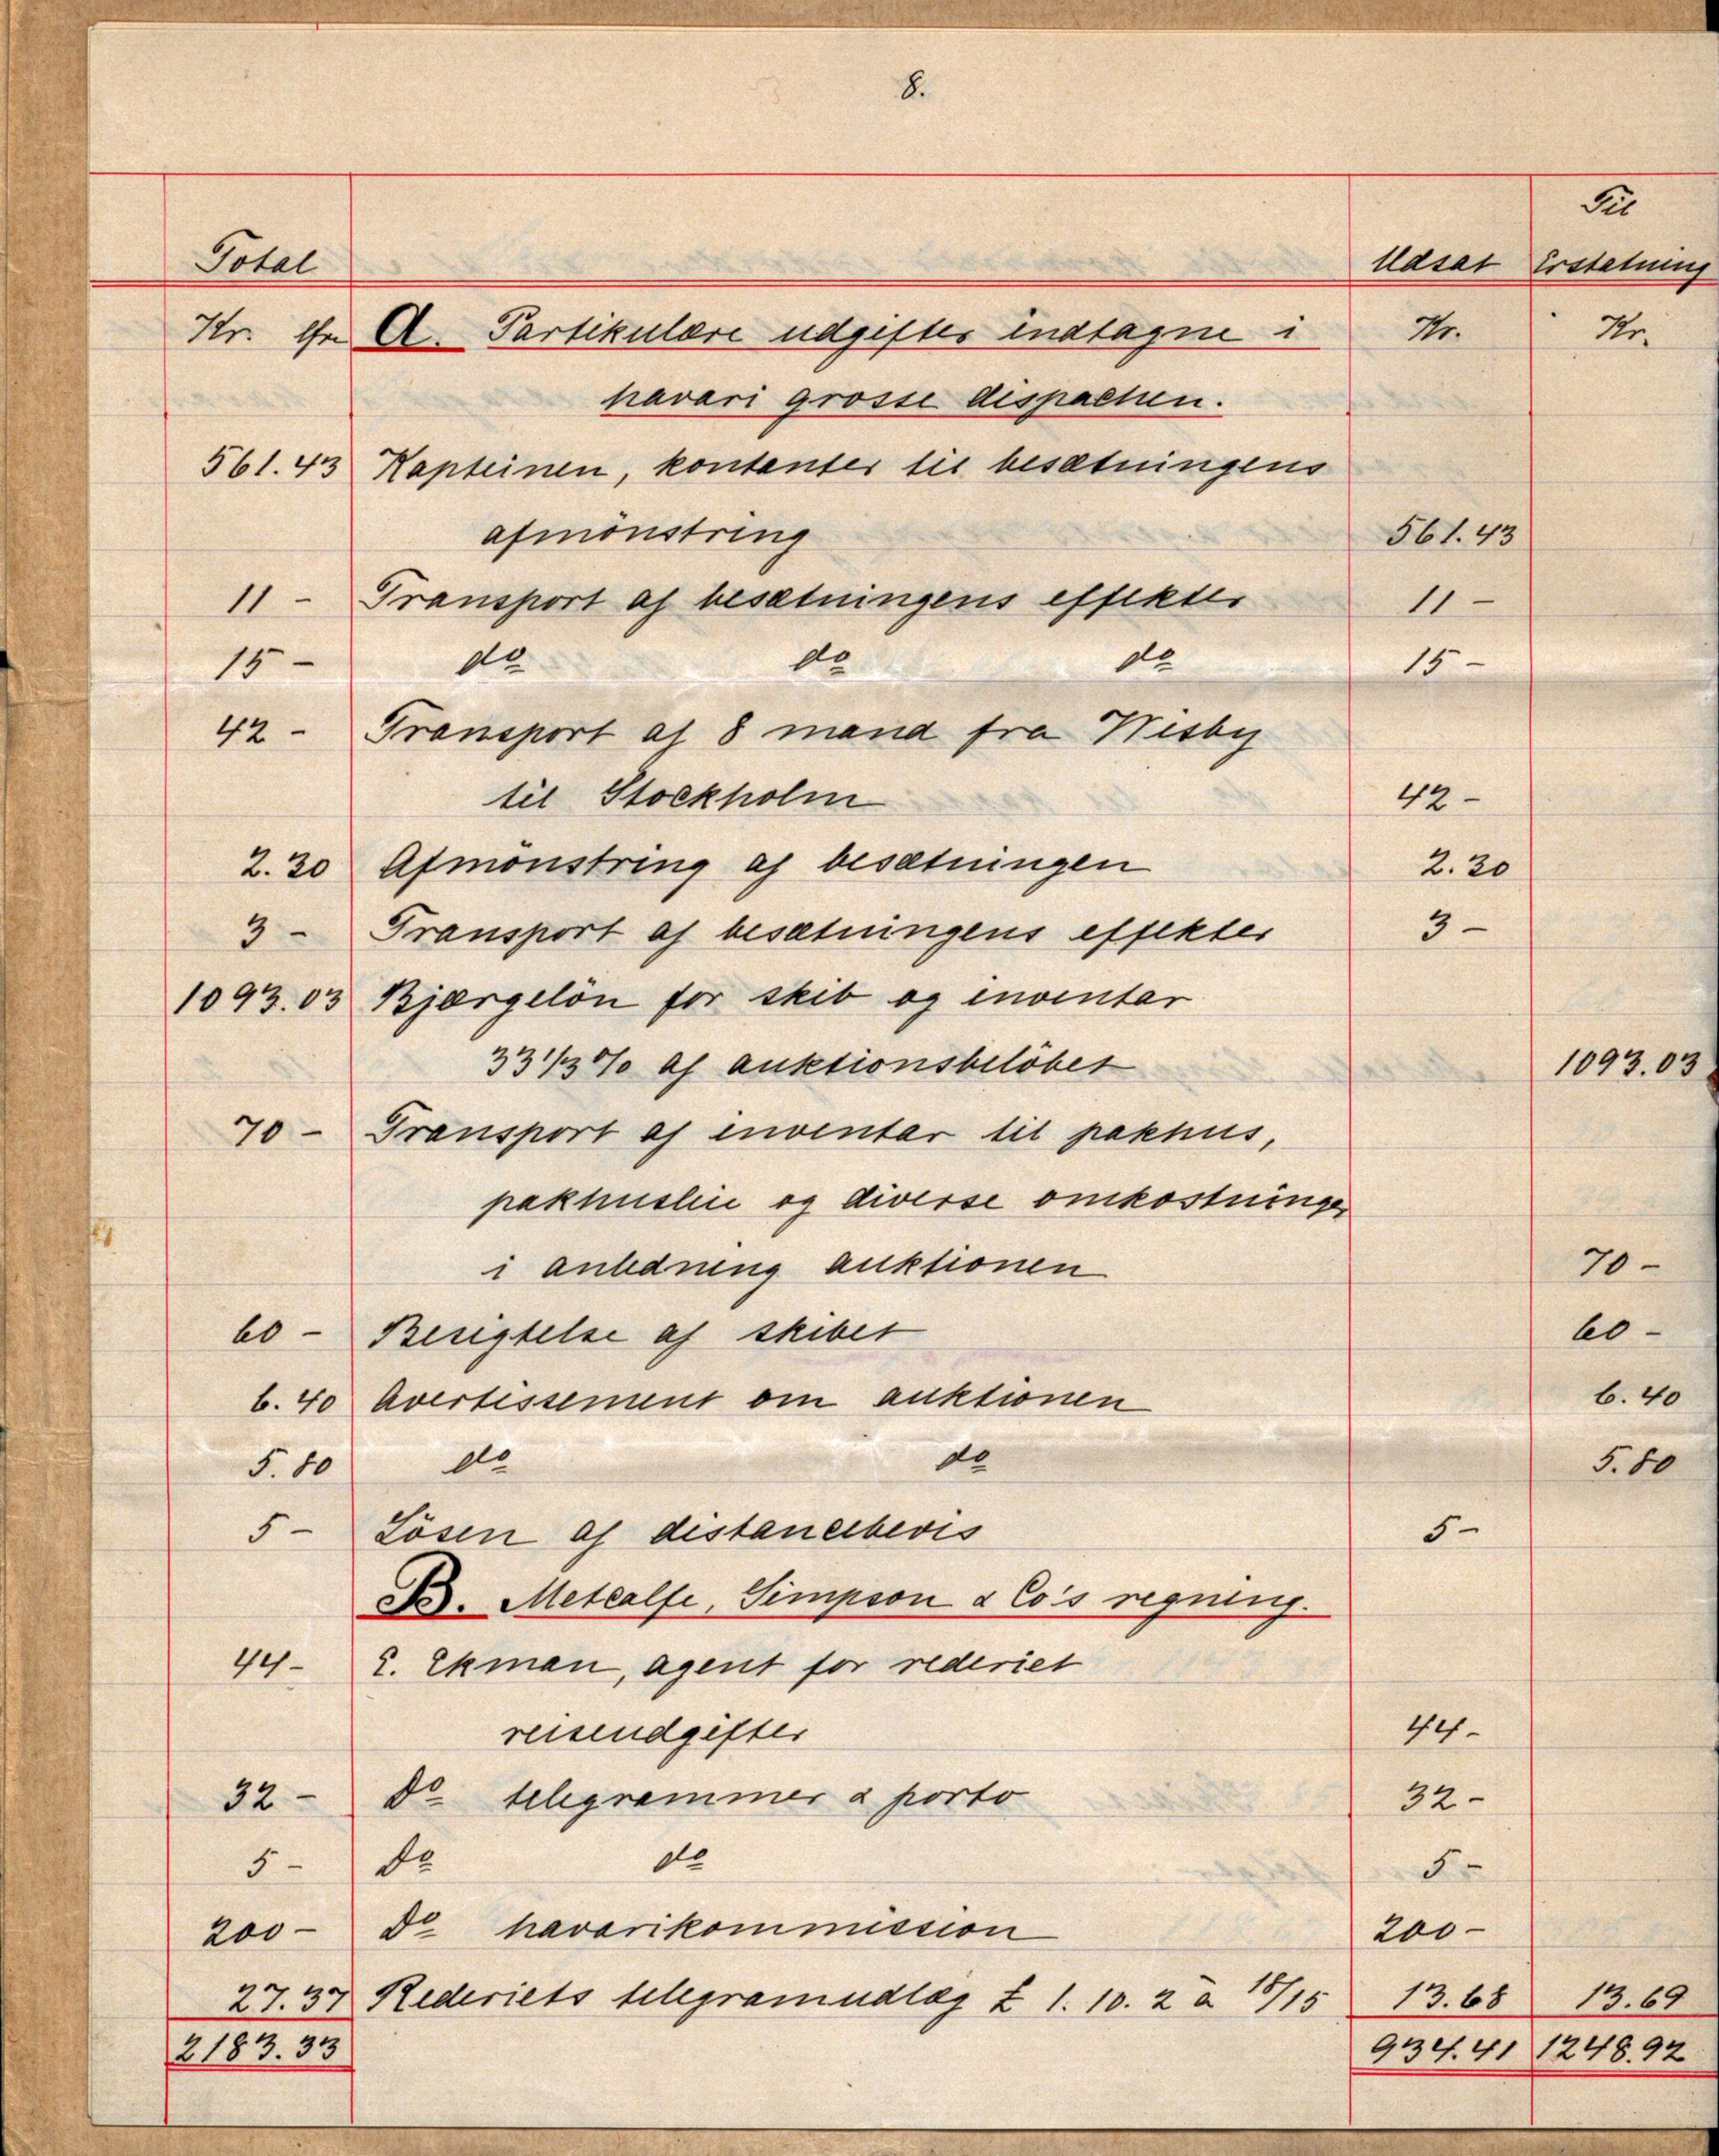 8.
Til
Total Udsat Erstatning
Kr. Øre A. Partikulære udgifter indtagne i Kr. Kr.
havari grosse dispachen.
561.43 Kapteinen, kontanter til besætningens
afmönstring 561.43
11 - Transport af besætningens effekter 11 -
15 - do do do 15 -
42 - Transport af 8 mand fra Wisby
til Stockholm 42 -
2.30 Afmönstring af besætningen 2.30
3 - Transport af besætningens effekter 3 -
1093.03 Bjærgelön for skib og inventar
33 1/3 % af auktionsbelöbet 1093.03
70 - Transport af inventar til pakhus,
pakhusleie og diverse omkostninger
i anledning auktionen 70 -
60 - Besigtelse af skibet 60 -
6.40 Avertissement om auktionen 6.40
5.80 do do 5.80
5 - Lösen af distancebevis 5 -
B. Metcalfe, Simpson & Co's regning.
44 - E. Ekman, agent for rederiet
reiseudgifter 44 -
32 - do telegrammer & porto 32 -
5 - do do 5 -
200 - do havarikommission 200 -
27.37 Rederiets telegramudlæg £ 1.10.2 à 18/15 13.68 13.69
2183.33 934.41 1248.92